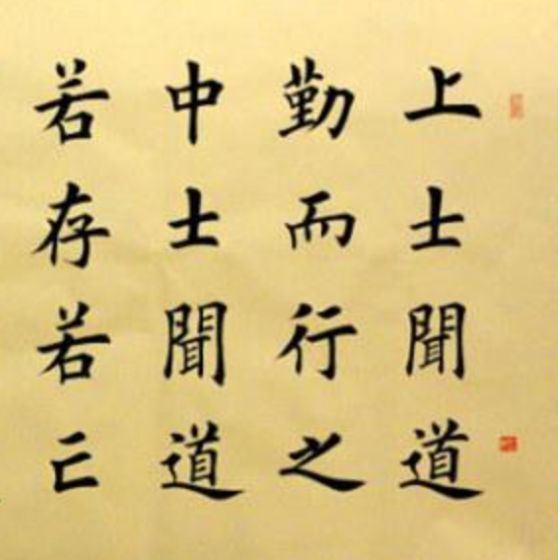 上士聞道
勤而行之
中士聞道
若存若亡